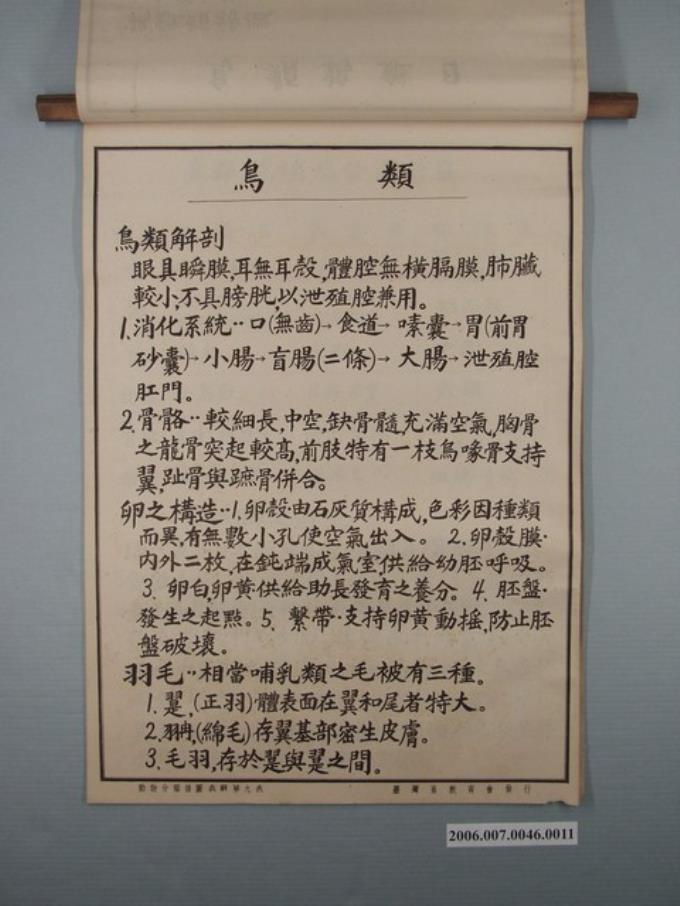 鳥 類
鳥類解剖
眼具瞬膜,耳無耳殼,體腔無橫膈膜,肺臟
較小,不具膀胱,以泄殖腔兼用。
1.消化系統‥口(無齒)→食道→嗉囊→胃(前胃
砂囊)→小腸→盲腸(二條)→大腸→泄殖腔
肛門。
2.骨骼‥較細長,中空,缺骨髓,充滿空氣,胸骨
之龍骨突起較高,前肢特有一枝烏喙骨支持
翼,趾骨與蹠骨併合。
卵之構造‥1.卵殼·由石灰質構成,色彩因種類
而異,有無數小孔使空氣出入。 2.卵殼膜·
內外二枚,在鈍端成氣室,供給幼胚呼吸。
3.卵白,卵黄·供給助長發育之養分。4.胚盤·
發生之起點。5.繫帶·支持卵黄動搖,防止胚
盤破壞。
羽毛‥相當哺乳類之毛被有三種。
1.翨,(正羽)體表面在翼和尾者特大。
2.(綿毛)存翼基部密生皮膚。
3.毛羽,存於翨與翨之間。
臺灣省教育會發行
2006.007.0046.0011